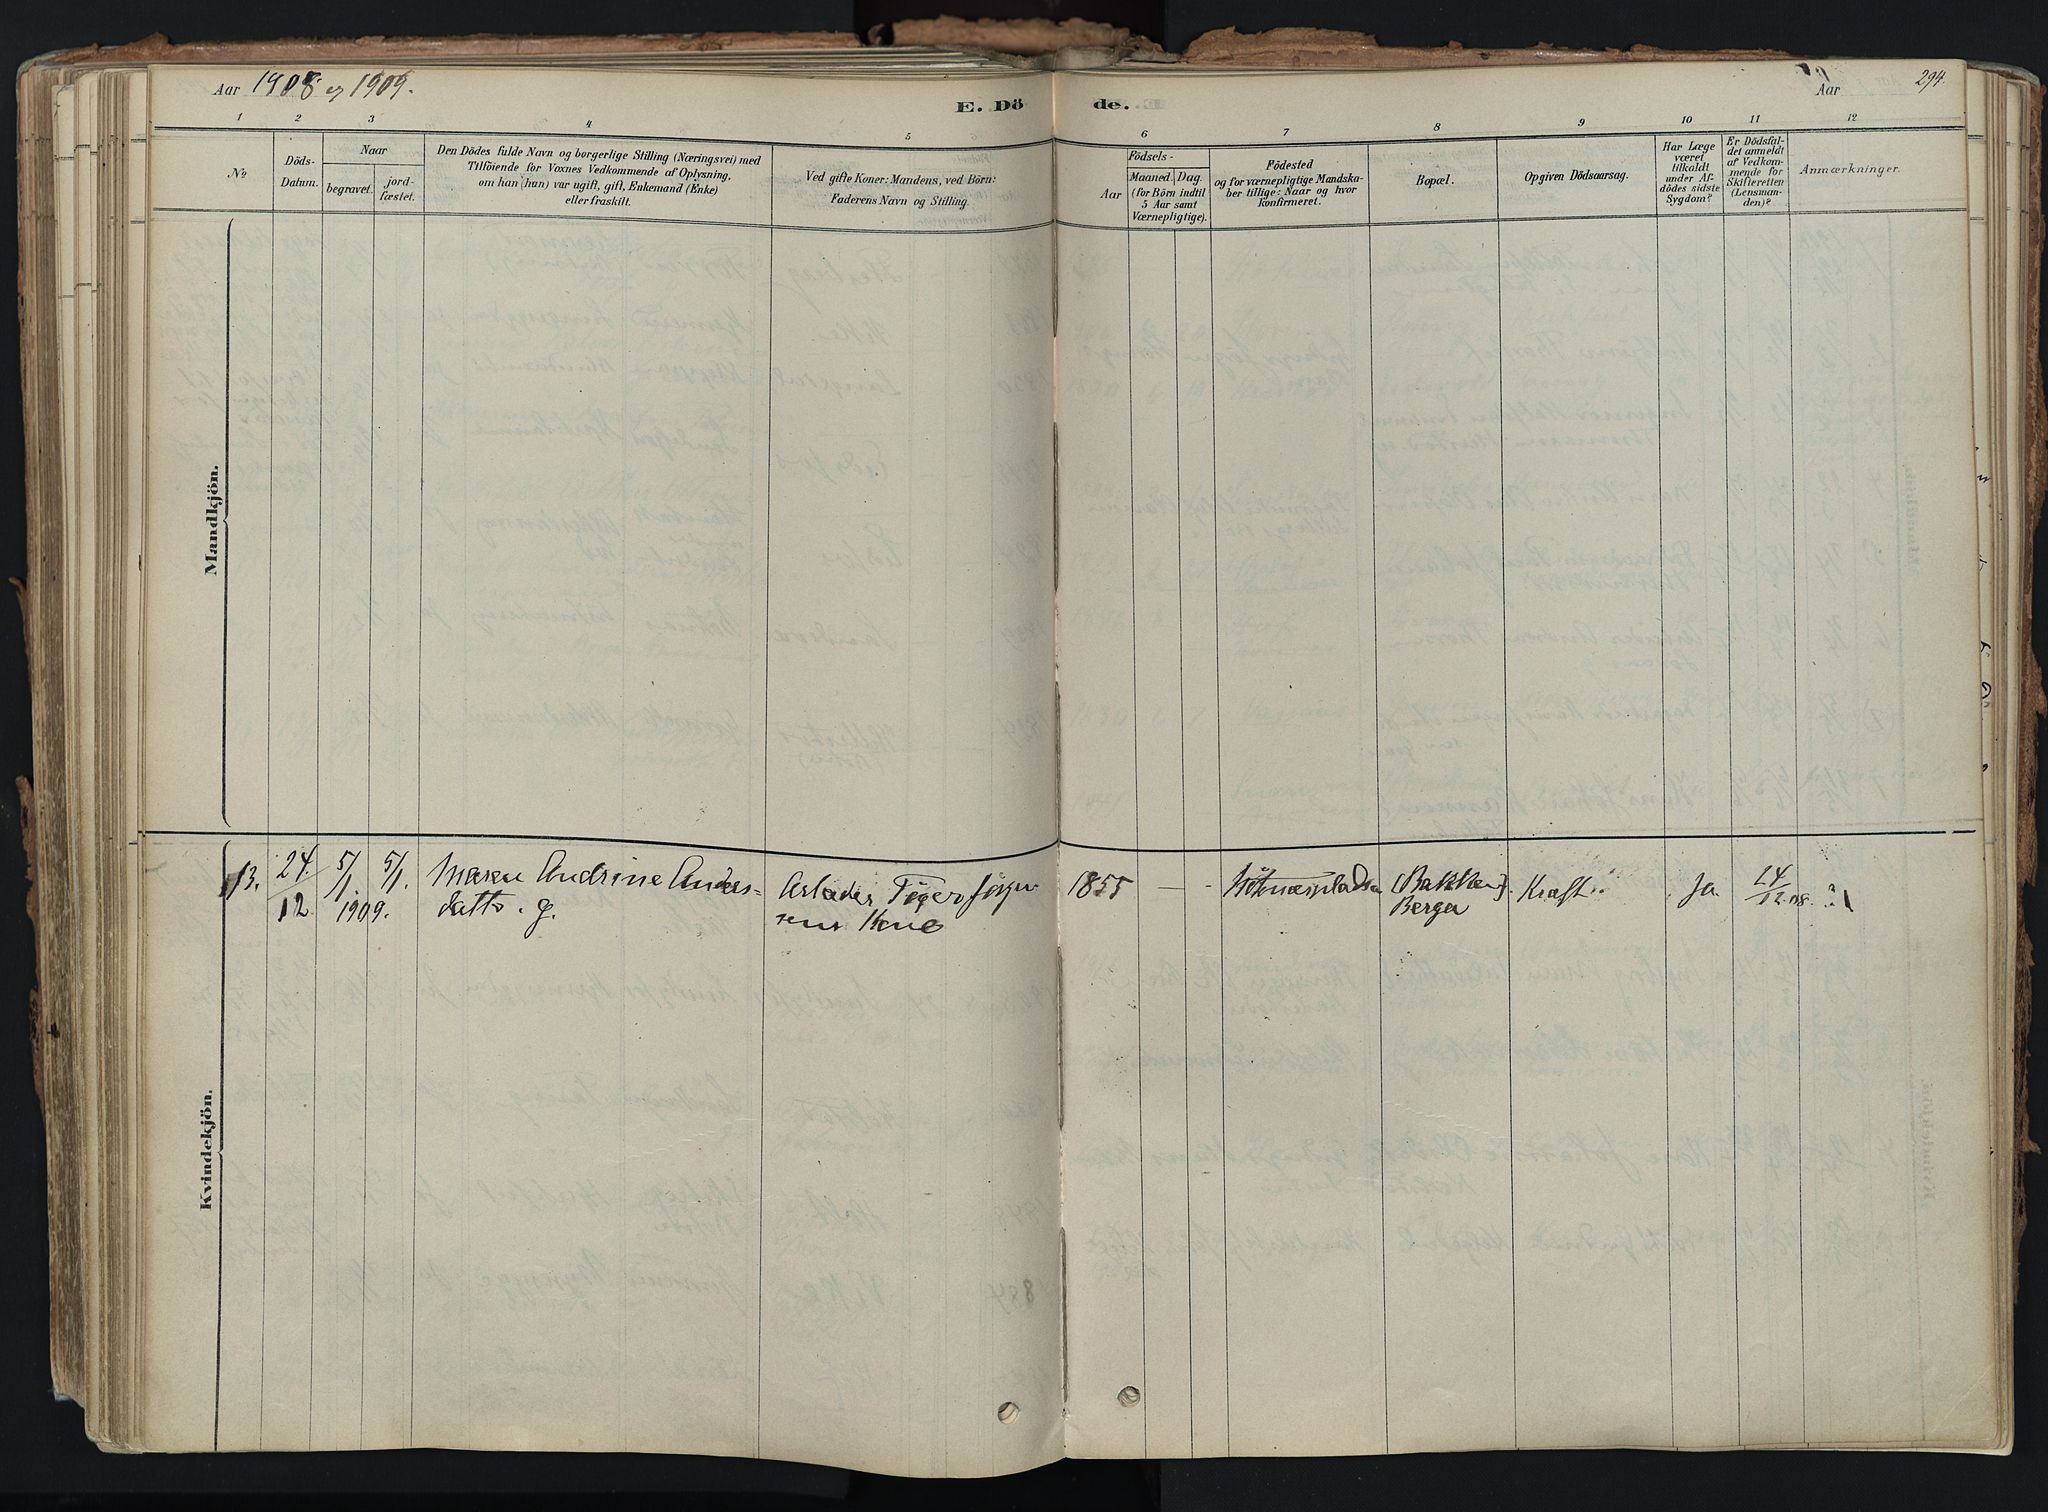 Aar 1908 og 1909.
E. Dö
de.
Aar
294.
1
2
3
4
5
6
7
8
9
10
11
12
No
Döds-
Datum.
Naar
begravet.
jord-
fæstet.
Den Dödes fulde Navn og borgerlige Stilling (Næringsvei) med
Tilföiende for Voxnes Vedkommende af Oplysning,
om han (hun) var ugift, gift, Enkemand (Enke)
eller fraskilt.
Ved gifte Koner: Mandens, ved Börn:
Faderens Navn og Stilling.
Aar
Födsels-
Maaned.
Dag.
(for Börn indtil
5 Aar samt
Værnepligtige).
Födested
og for værnepligtige Mandska-
ber tillige: Naar og hvor
konfirmeret.
Bopæl.
Opgiven Dödsaarsag.
Har Læge
været
tilkaldt
under Af-
dödes sidste
Sygdom?
Er Dödsfal-
det anmeldt
af Vedkom-
mende for
Skifteretten
(Lensman-
den)?
Anmærkninger.
Mandkjön.
Kvindekjön.
13.
24/12
5/1
1909.
5/1.
Maren Andrine Anders-
datter. g.
Arbeider Jørgen-
sens Kone
1855
—
-
(Bakken)
Berger
Kræft
Ja
24/12 08.